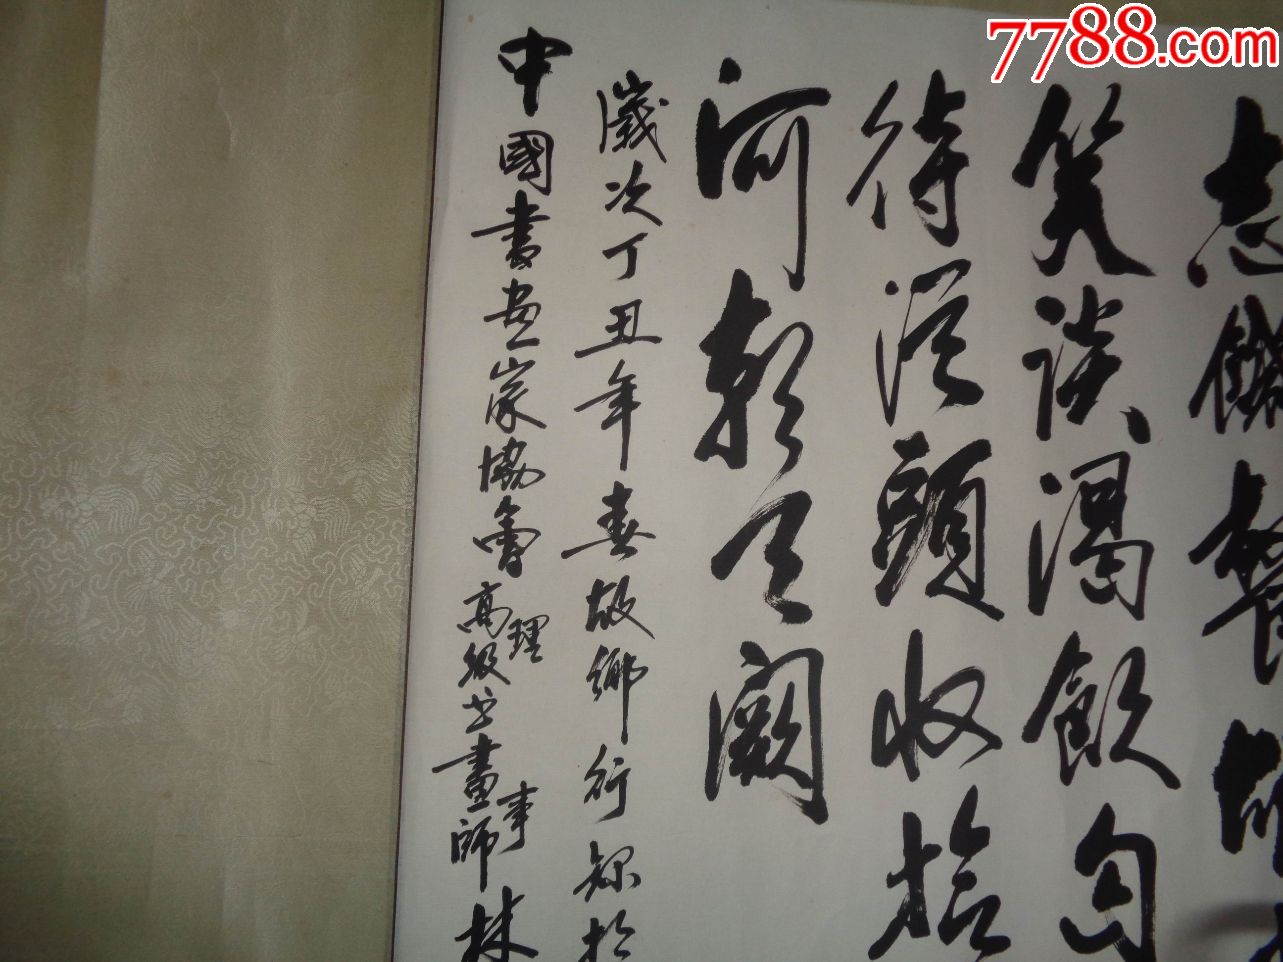 7788.com
志饑餐胡
笑談渴飲匈
待從頭收拾
河朝天闕
歲次丁丑年春故鄉行錄於
中國書画家協會理事
高級书畫師林